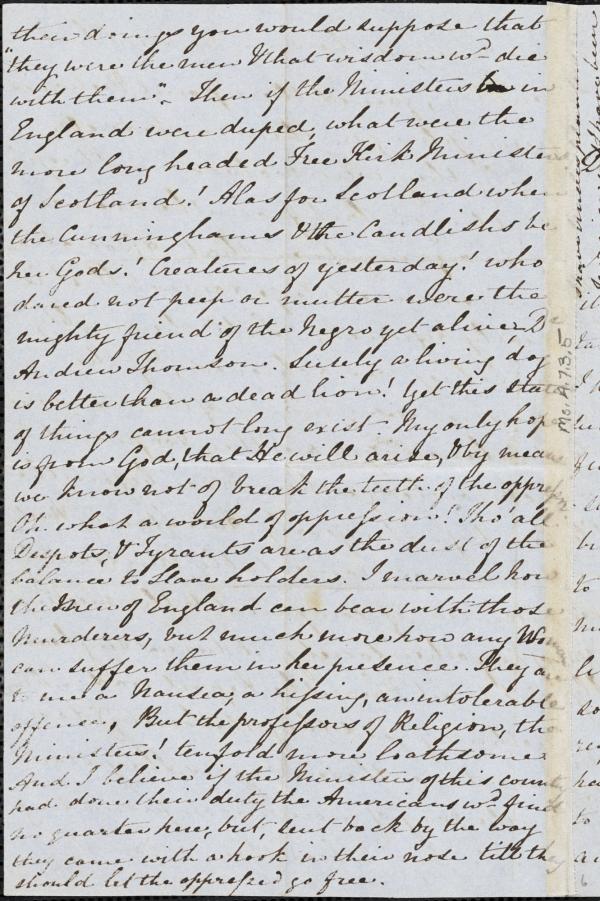 their doings you would suppose that
"they were the men & that wisdom wd die
with them". Then if the Ministers in
England were duped, what were the
more long headed Free Kirk Ministers
of Scotland! Alas for Scotland when
the Cunninghams & the Candlishs be
her Gods! Creatures of yesterday! who
dared not peep or mutter were the
mighty friend of the Negro yet alive, D
Andrew Thomson. Surely a living dog
is better than a dead lion! Yet this state
of things cannot long exist - My only hope
is from God, that He will arise, & by means
we know not of break the teeth of the oppress
Oh what a world of oppression! Tho' all
Despots, & Tyrants are as the dust of the
balance to Slave holders. I marvel how
the Men of England can bear with those
Murderers, but much more how any Woman
can suffer them in her presence. They are
to me a Nausea, a hissing, an intolerable
offence, But the professors of Religion, the
Ministers! tenfold more loathsome
And I believe if the Ministers of this country
had done their duty the Americans wd find
no quarter here, but, sent back by the way
they came with a hook in their nose till they
should let the oppressed go free.
Ms.A.7.3.5